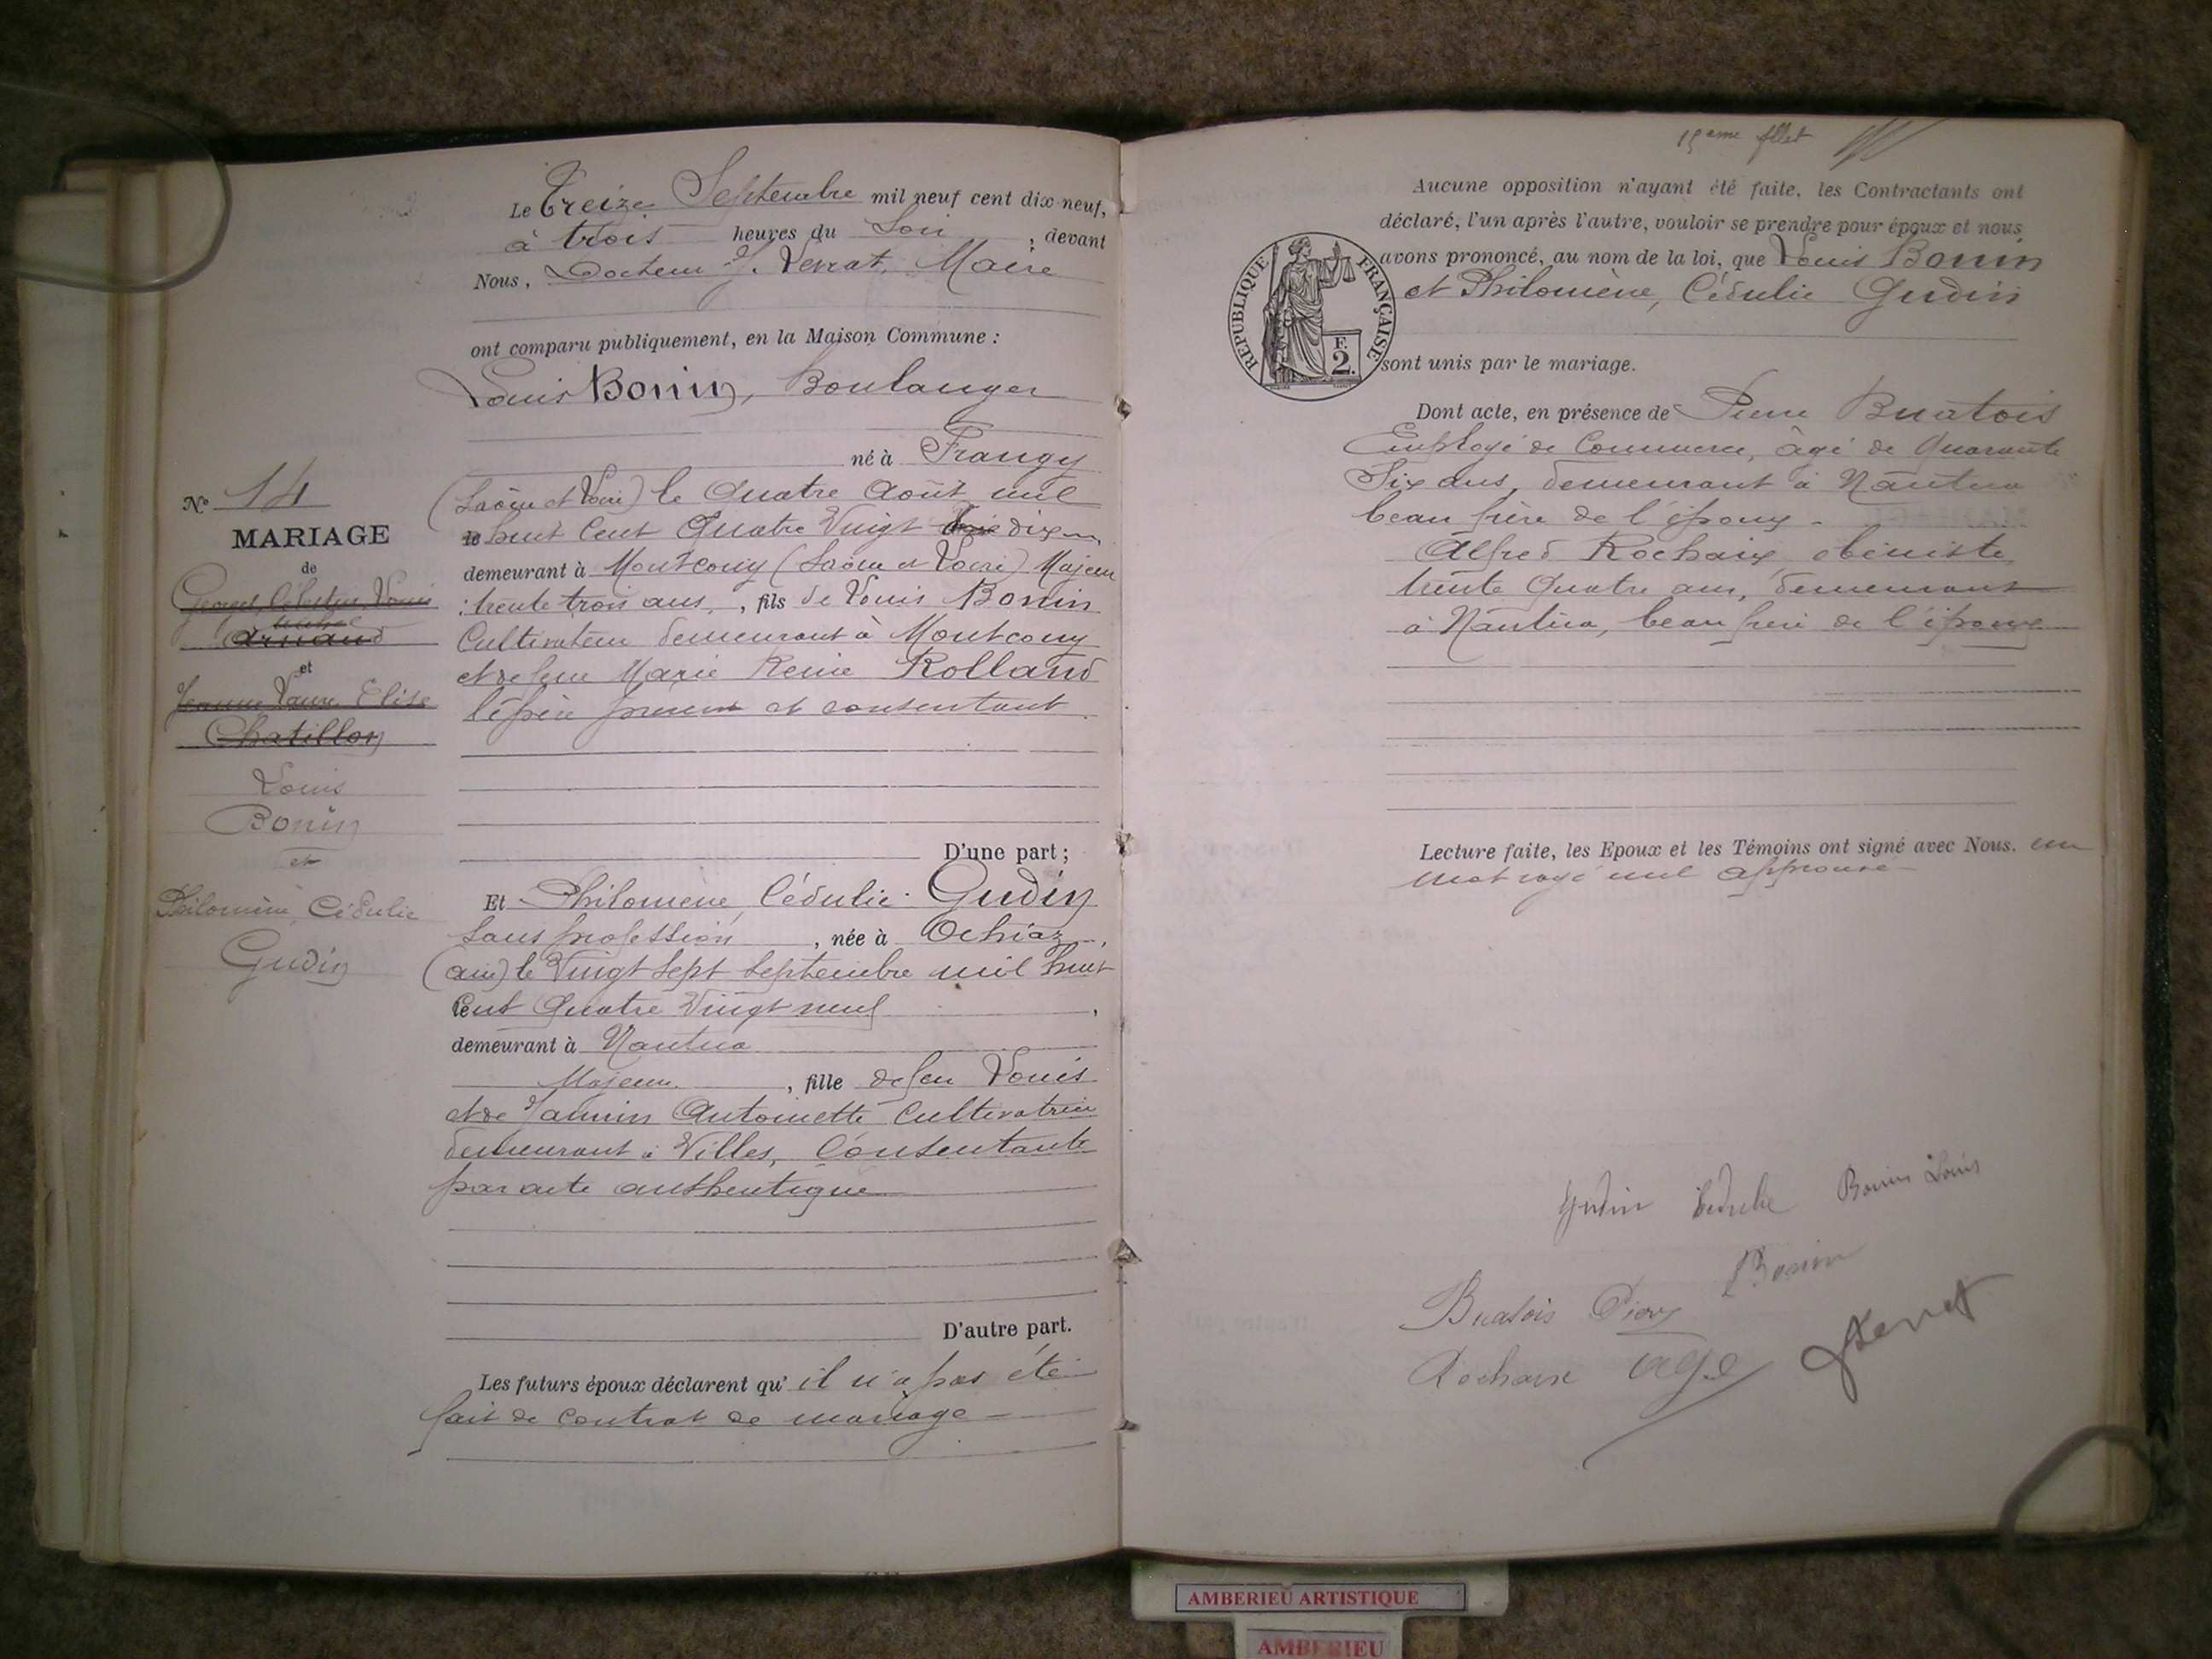 Le Treize Septembre mil neuf cent dix-neuf,
à trois heures du Soir, devant
Nous, Docteur Maire
ont comparu publiquement, en la Maison Commune :
Louis Bonin, Boulanger
né à Frangy
(Saône et Loire) le Quatre Août mil
huit Cent Quatre Vingt dix
demeurant à Montcony (Saône et Loire) Majeur
trente trois ans, fils de Louis Bonin
Cultivateur demeurant à Montcony
et de feue Marie Reine Rolland
le père présent et consentant
D'une part ;
Et Philomène, Cédulie Gudin
Sans profession, née à Ochiaz,
(ain) le Vingt Sept Septembre mil huit
Cent Quatre Vingt neuf,
demeurant à Nantua
Majeure, fille de feu Louis
et de Jannin Antoinette Cultivatrice
demeurant à Villes, Consentante
par acte authentique
D'autre part.
Les futurs époux déclarent qu' il n'a pas été
fait de contrat de mariage
N° 14
MARIAGE
de
Georges, Célestin, Louis
Arnaud
et
Jeanne Laure Elise
Chatillon
Louis
Bonin
et
Philomène, Cédulie
Gudin
15eme fllet
Aucune opposition n'ayant été faite, les Contractants ont
déclaré, l'un après l'autre, vouloir se prendre pour époux et nous
avons prononcé, au nom de la loi, que Louis Bonin
et Philomène, Cédulie Gudin
sont unis par le mariage.
REPUBLIQUE FRANÇAISE
F.
2.
Dont acte, en présence de Pierre Buatois
Employé de Commerce, âgé de Quarante
Six ans, demeurant à Nantua
beau frère de l'époux
Alfred Rochaix ébéniste
trente Quatre ans, demeurant
à Nantua, beau frère de l'épouse
Lecture faite, les Epoux et les Témoins ont signé avec Nous. un
mot rayé nul approuvé
Gudin Cédulie Bonin Louis
Bonin
Buatois Pierre
Rochaix
AMBERIEU ARTISTIQUE
AMBERIEU